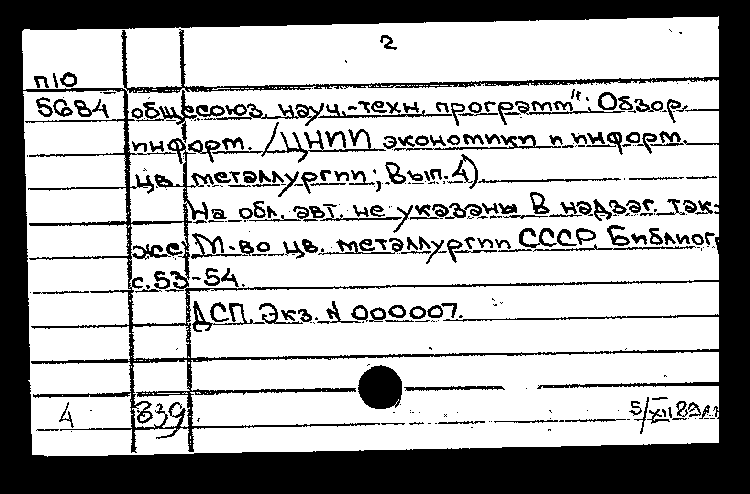 2
П10
5684 общесоюз. науч.-техн. программ": Обзор.
информ. /ЦНИИ экономики и информ.
цв. металлургии; Вып. 4).
На обл. авт. не указаны. В надзаг. так-
же: М-во цв. металлургии СССР. Библиогр
с. 53-54.
ДСП. Экз. № 000007.
4 839 5/XII 89